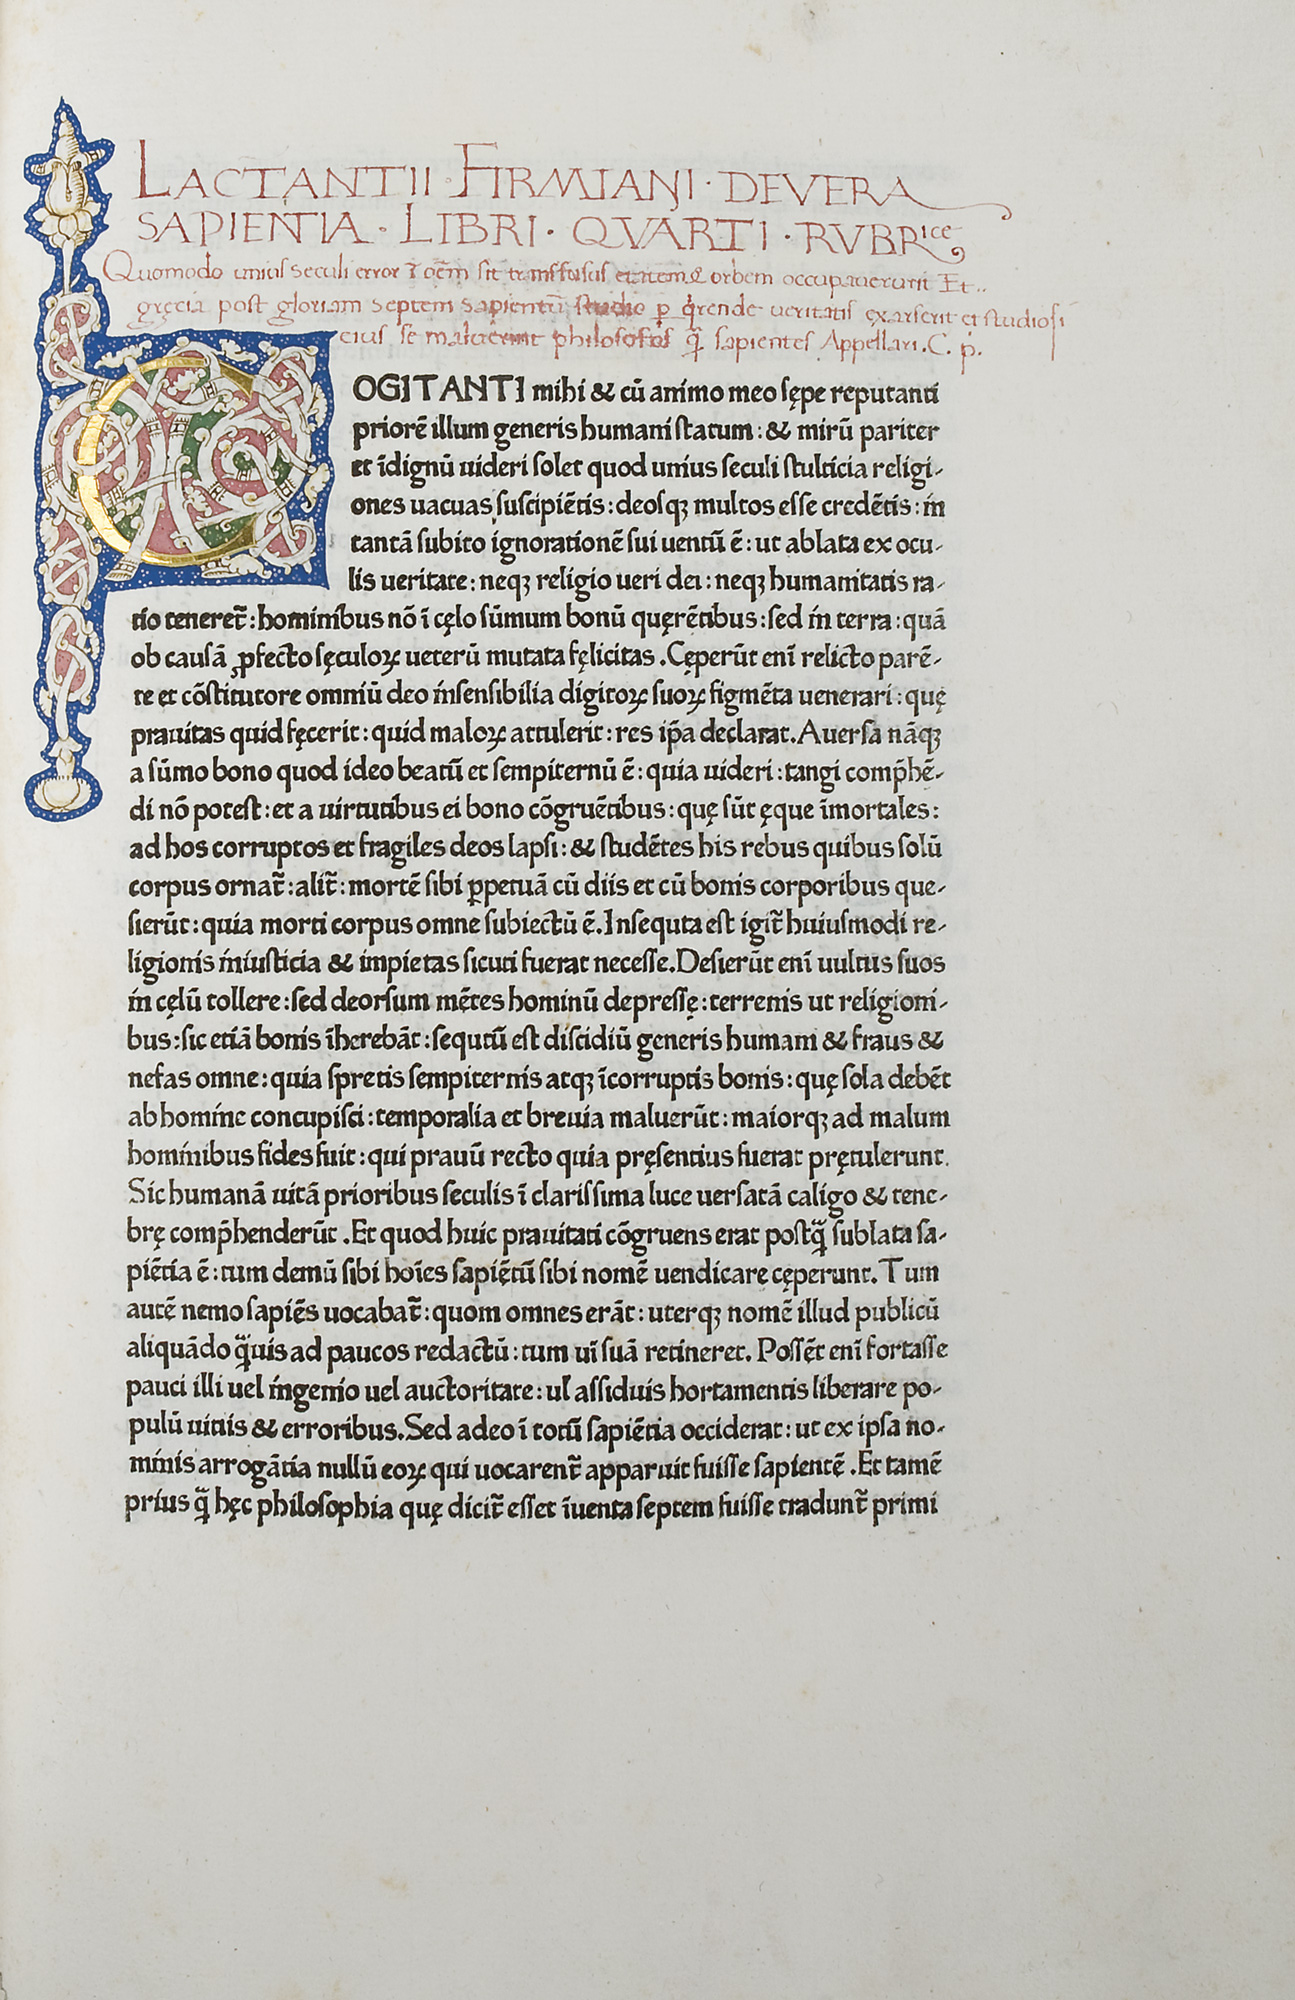 LACTANTII · FIRMIANI · DE VERA
SAPIENTIA · LIBRI · QVARTI · RVBRice
Quomodo unius seculi error ī oēm sit transfusus et orbem occupauerunt Et
grecia post gloriam septem sapientū studio ꝑ q̄rende ueritatis exarserit et studiosi
eius se maluerint philosofos q̄ sapientes Appellari. C. p.
COGITANTI mihi & cū animo meo sępe reputanti
priorē illum generis humani statum: & mirū pariter
et īdignū uideri solet quod unius seculi stulticia religi-
ones uacuas suscipiētis: deosqꝫ multos esse credētis: in
tantā subito ignorationē sui uentū ē: ut ablata ex ocu-
lis ueritate: neqꝫ religio ueri dei: neqꝫ humanitatis ra-
tio teneret̄: hominibus nō ī cęlo sūmum bonū quęrētibus: sed in terra: quā
ob causā ꝓfecto sęculoꝝ ueterū mutata fęlicitas. Cęperūt enī relicto parē-
te et cōstitutore omniū deo insensibilia digitoꝝ suoꝝ figmēta uenerari: quę
prauitas quid fęcerit: quid maloꝝ attulerit: res ip̄a declarat. Auersa nāqꝫ
a sūmo bono quod ideo beatū et sempiternū ē: quia uideri: tangi comp̄hē-
di nō potest: et a uirtutibus ei bono cōgruētibus: quę sūt ęque īmortales:
ad hos corruptos et fragiles deos lapsi: & studētes his rebus quibus solū
corpus ornat̄: alit̄: mortē sibi ꝑpetuā cū diis et cū bonis corporibus que-
sierūt: quia morti corpus omne subiectū ē. Insequta est igit̄ huiusmodi re-
ligionis iniusticia & impietas sicuti fuerat necesse. Desierūt enī uultus suos
in cęlū tollere: sed deorsum mētes hominū depressę: terrenis ut religioni-
bus: sic etiā bonis īherebāt: sequtū est discidiū generis humani & fraus &
nefas omne: quia spretis sempiternis atqꝫ īcorruptis bonis: quę sola debēt
ab homine concupisci: temporalia et breuia maluerūt: maiorqꝫ ad malum
hominibus fides fuit: qui prauū recto quia pręsentius fuerat prętulerunt.
Sic humanā uitā prioribus seculis ī clarissima luce uersatā caligo & tene-
brę comp̄henderūt. Et quod huic prauitati cōgruens erat postq̄ sublata sa-
piētia ē: tum demū sibi hoīes sapiētū sibi nomē uendicare cęperunt. Tum
autē nemo sapiēs uocabat̄: quom omnes erāt: uterqꝫ nomē illud publicū
aliquādo q̄uis ad paucos redactū: tum uī suā retineret. Possēt enī fortasse
pauci illi uel ingenio uel auctoritate: ul̄ assiduis hortamentis liberare po-
pulū uitiis & erroribus. Sed adeo ī totū sapiētia occiderat: ut ex ipsa no-
minis arrogātia nullū eoꝝ qui uocarent̄ apparuit fuisse sapientē. Et tamē
prius q̄ hęc philosophia quę dicit̄ esset īuenta septem fuisse tradunt̄ primi